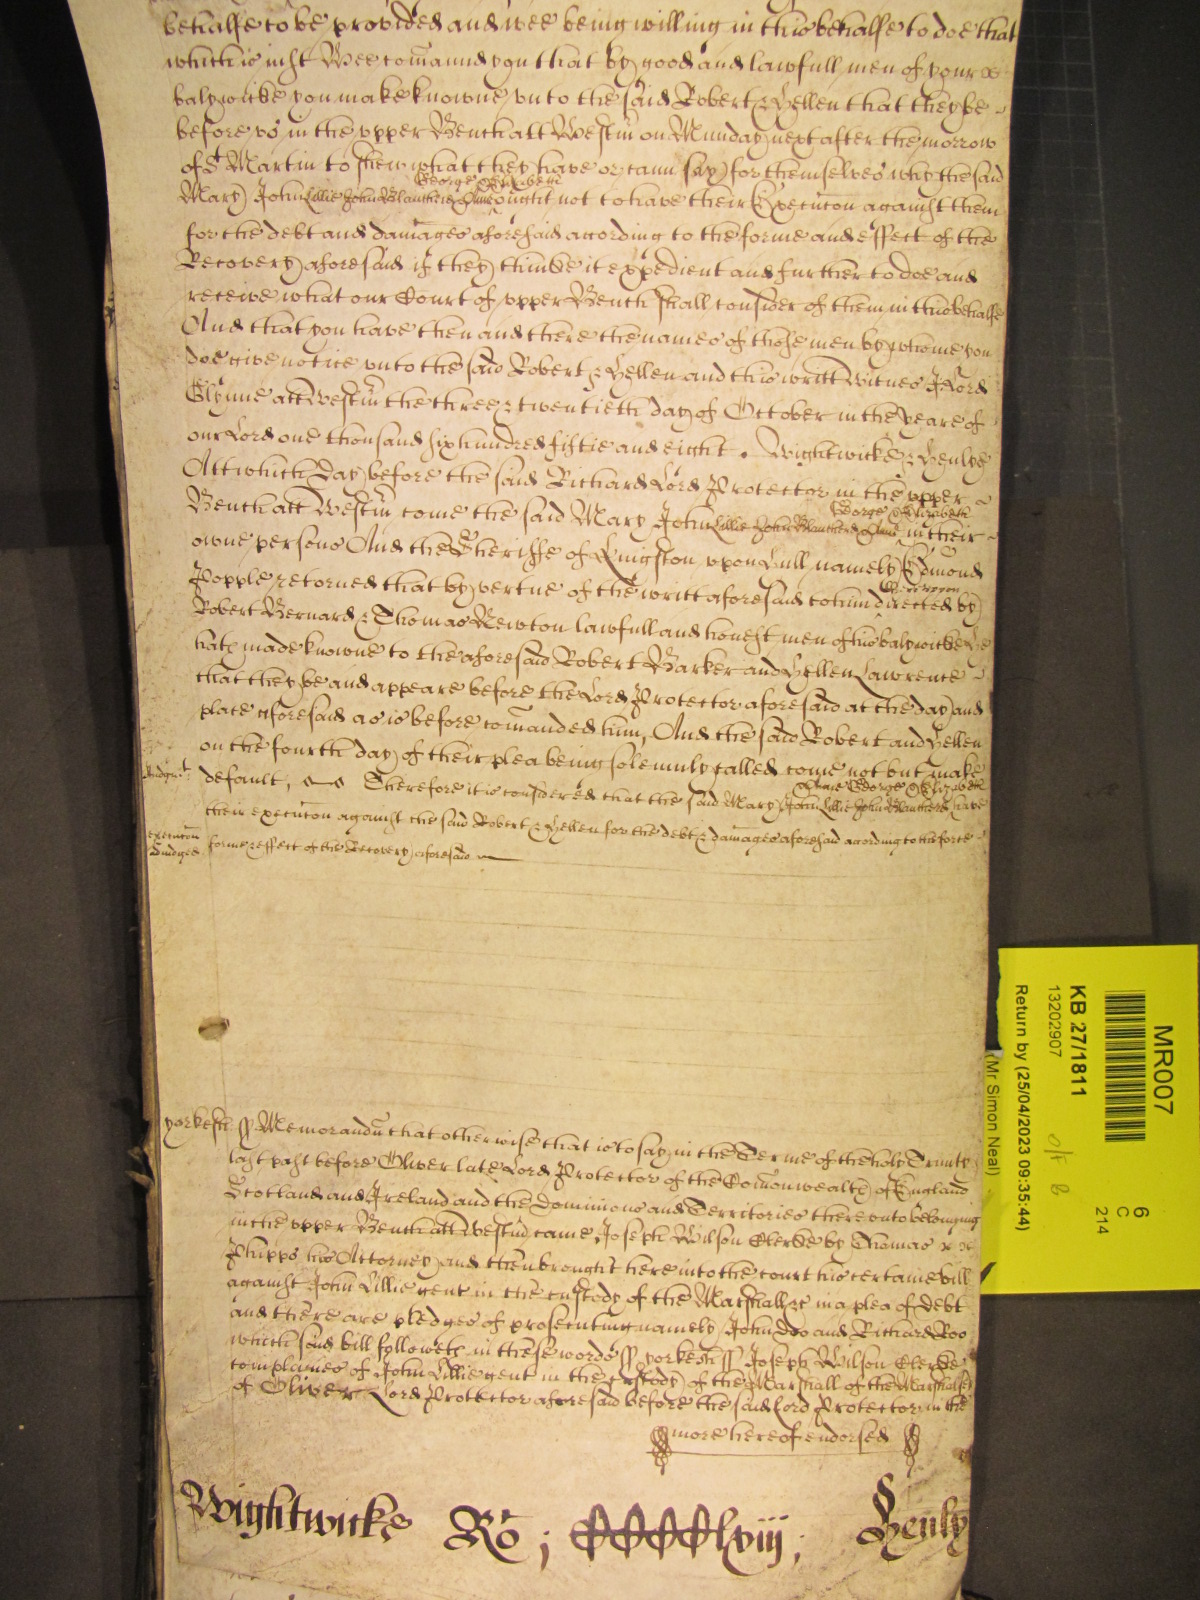 behalfe to be provided and wee being willing in this behalfe to doe that
which is iust Wee comaund you that by good and lawfull men of your
balywicke you make knowne vnto the said Robert & Hellen that they be
before vs in the vpper Bench att Westm on Munday next after the morrow
of St Martin to shew what they have or cann say for themselves why the said
George Elizabeth
Mary John Lillie John Blanchard ought not to have their Execucon against them
for the debt and damages aforesaid according to the forme and effect of the
Recovery aforesaid if they thinke it expedient and further to doe and
receive what our Court of vpper Bench shall consider of them in this behalfe
And that you have then and there the names of those men by whome you
doe give notice vnto the said Robert & Hellen and this writt Witnes J Lord
Glynne att Westm the three & twentieth day of October in the yeare of
our Lord one thousand six hundred fiftie and eight . Wightwicke & Henlye
Att which day before the said Richard Lord Protector in the vpper
George Elizabeth
Bench att Westm come the said Mary John Lillie John Blanchard in their
owne persons And the Sheriffe of Kingston vpon Hull namely Edmond
Popple retorned that by vertue of the writt aforesaid to him directed by
Robert Bernard & Thomas Newton lawfull and honest men of his balywicke He
hath made knowne to the aforesaid Robert Barker and Hellen Lawrence
that they be and appeare before the Lord Protector aforesaid at the day and
place aforesaid as is before comanded him, And the said Robert and Hellen
on the fourth day of their plea being solemnly called come not but make
Judgmt
George Elizabeth
default, Therefore it is considered that the said Mary John Lillie John Blanchard have
their execucon against the said Robert & Hellen for the debt & damages aforesaid according to the force
execucon
Judged
forme & effect of the Recovery aforesaid
yorkesh ss Memorandu that otherwise that is to say in the Terme of the holy Trinity
last past before Oliver late Lord Protector of the Comonwealth of England
Scotland and Ireland and the Dominions and Territories there vnto belonging
in the vpper Bench att Westm came Joseph Wilson Clerke by Thomas
Phipps his Attorney and then brought here into the court his certaine bill
against John Lillie gent in the custody of the Marshall &c in a plea of debt
and there are pledges of prosecuting namely John Doo and Richard Roo
which said bill followeth in these words ss yorkesh ss Joseph Wilson Clerke
complaines of John Lillie gent in the custody of the Marshall of the Marshalsey
of Oliver Lord Protector aforesaid before the said Lord Protector in the
more hereof endorsed
Wightwicke Ro ; CCCClviij ; Henly
MR007
KB 27/1811
13202907
Return by (25/04/2023 09:35:44)
(Mr Simon Neal)
6
C
214
O/F B